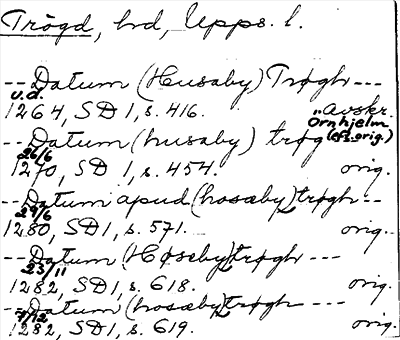 Trögd, hd, Upps. l.
---Datum (Husaby) Trøgh---
u.d.
1264, SD 1, s. 416. "Avskr.
Örnhjelm
---Datum (husaby) trøg (eft. orig.)
26/6
1270, SD 1, s. 454. orig.
---Datum apud (hosæby) trøgh---
29/6
1280, SD 1, s. 571. orig.
---Datum (Høseby) trøgh---
23/11
1282, SD 1, s. 618. orig.
---Datum (hosæby) trøgh---
7/12
1282, SD 1, s. 619. orig.